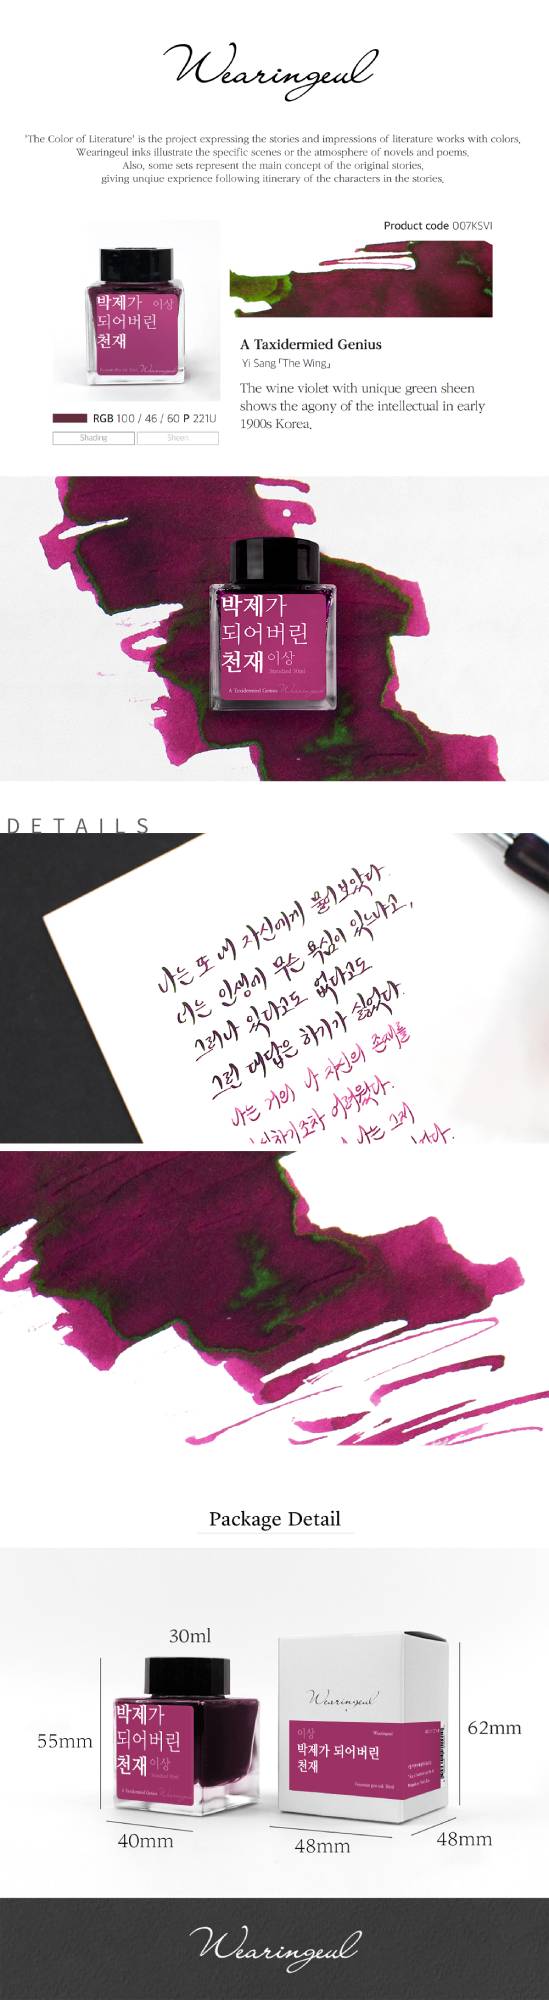 Wearingeul
'The Color of Literature' is the project expressing the stories and impressions of literature works with colors,
Wearingeul inks illustrate the specific scenes or the atmosphere of novels and poems.
Also, some sets represent the main concept of the original stories,
giving unqiue exprience following itinerary of the characters in the stories,
Product code 007KSVI
박제가 이상
되어버린
천재
Wearingeul
A Taxidermied Genius
Yi Sang「The Wing」
The wine violet with unique green sheen
shows the agony of the intellectual in early
1900s Korea,
RGB 100 / 46 / 60 P 221U
Shading
Sheen
박제가
되어버린
천재 이상
Standard 30ml
A Taxidermied Genius Wearingeul
DETAILS
나는 또 내 자신에게 물어보았다.
너는 인생에 무슨 욕심이 있느냐고,
그러나 있다고도 없다고도
그런 대답은 하기가 싫었다.
나는 거의 나 자신의 존재를
인식하기조차 어려웠다.
나는 그저
Package Detail
30ml
55mm
40mm
박제가
되어버린
천재 이상
Standard 30ml
A Taxidermied Genius Wearingeul
62mm
48mm
48mm
Wearingeul
이상
Wearingeul
박제가 되어버린
천재
Wearingeul